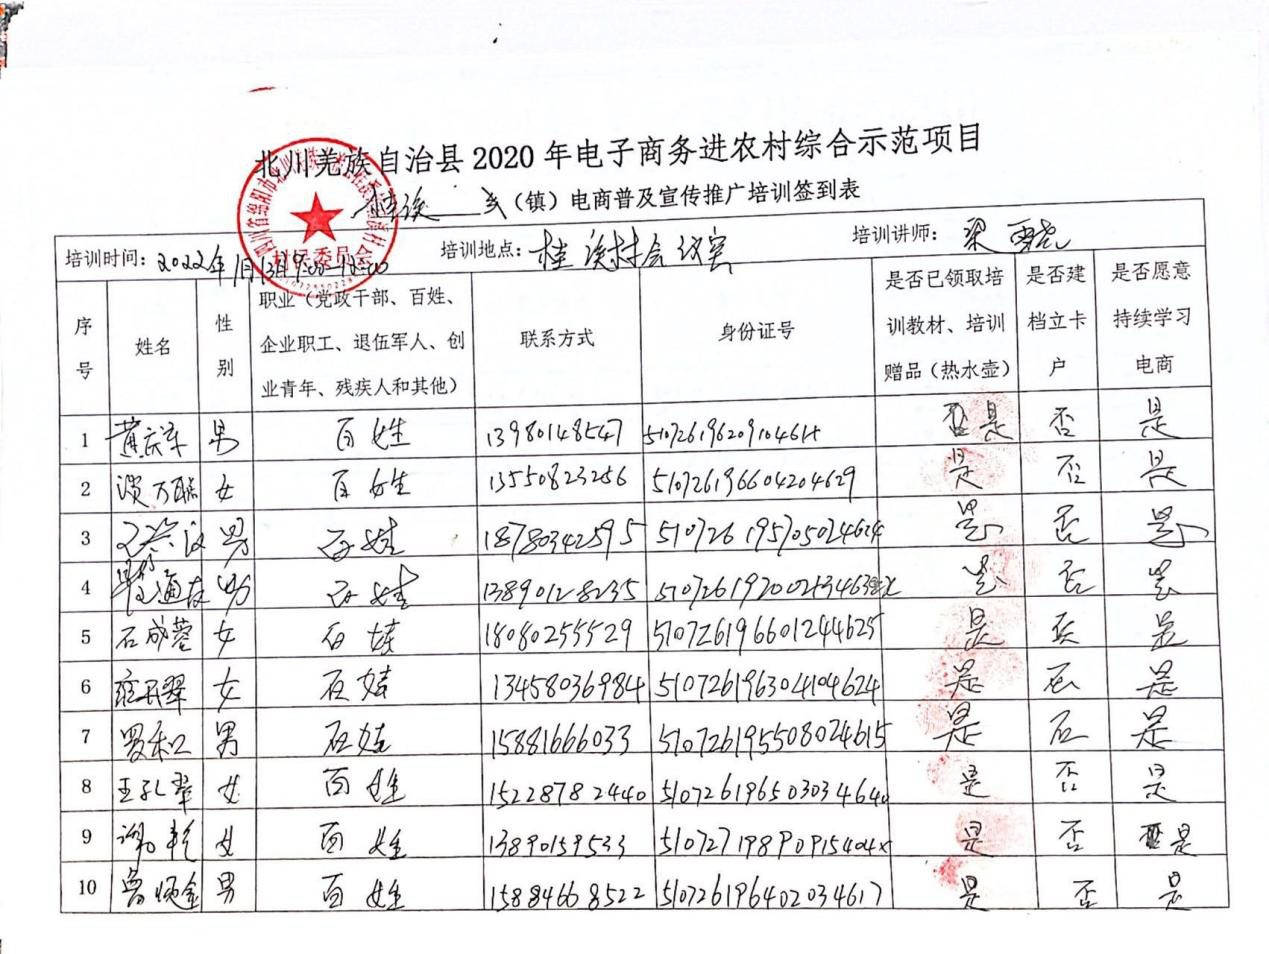 北川羌族自治县2020年电子商务进农村综合示范项目
桂溪 乡（镇）电商普及宣传推广培训签到表
培训时间：2022年1月13日9:00-12:00 培训地点：桂溪村会议室 培训讲师：梁
序号 姓名 性别 职业（党政干部、百姓、企业职工、退伍军人、创业青年、残疾人和其他） 联系方式 身份证号 是否已领取培训教材、培训赠品（热水壶） 是否建档立卡户 是否愿意持续学习电商
1 黄庆军 男 百姓 13980148547 是 否 是
2 女 百姓 13550823256 510726196604204629 是 否 是
3 男 百姓 18780342595 510726195705024614 是 否 是
4 男 百姓 13890128235 是 否 是
5 石成蓉 女 百姓 18080255529 510726196601244625 是 否 是
6 女 百姓 13458036984 510726196304104624 是 否 是
7 男 百姓 15881666033 510726195508024615 是 否 是
8 王孔翠 女 百姓 15228782440 510726196503034640 是 否 是
9 女 百姓 13890159533 51072719890915404x 是 否 是
10 男 百姓 15884668522 510726196402034617 是 否 是
村民委员会